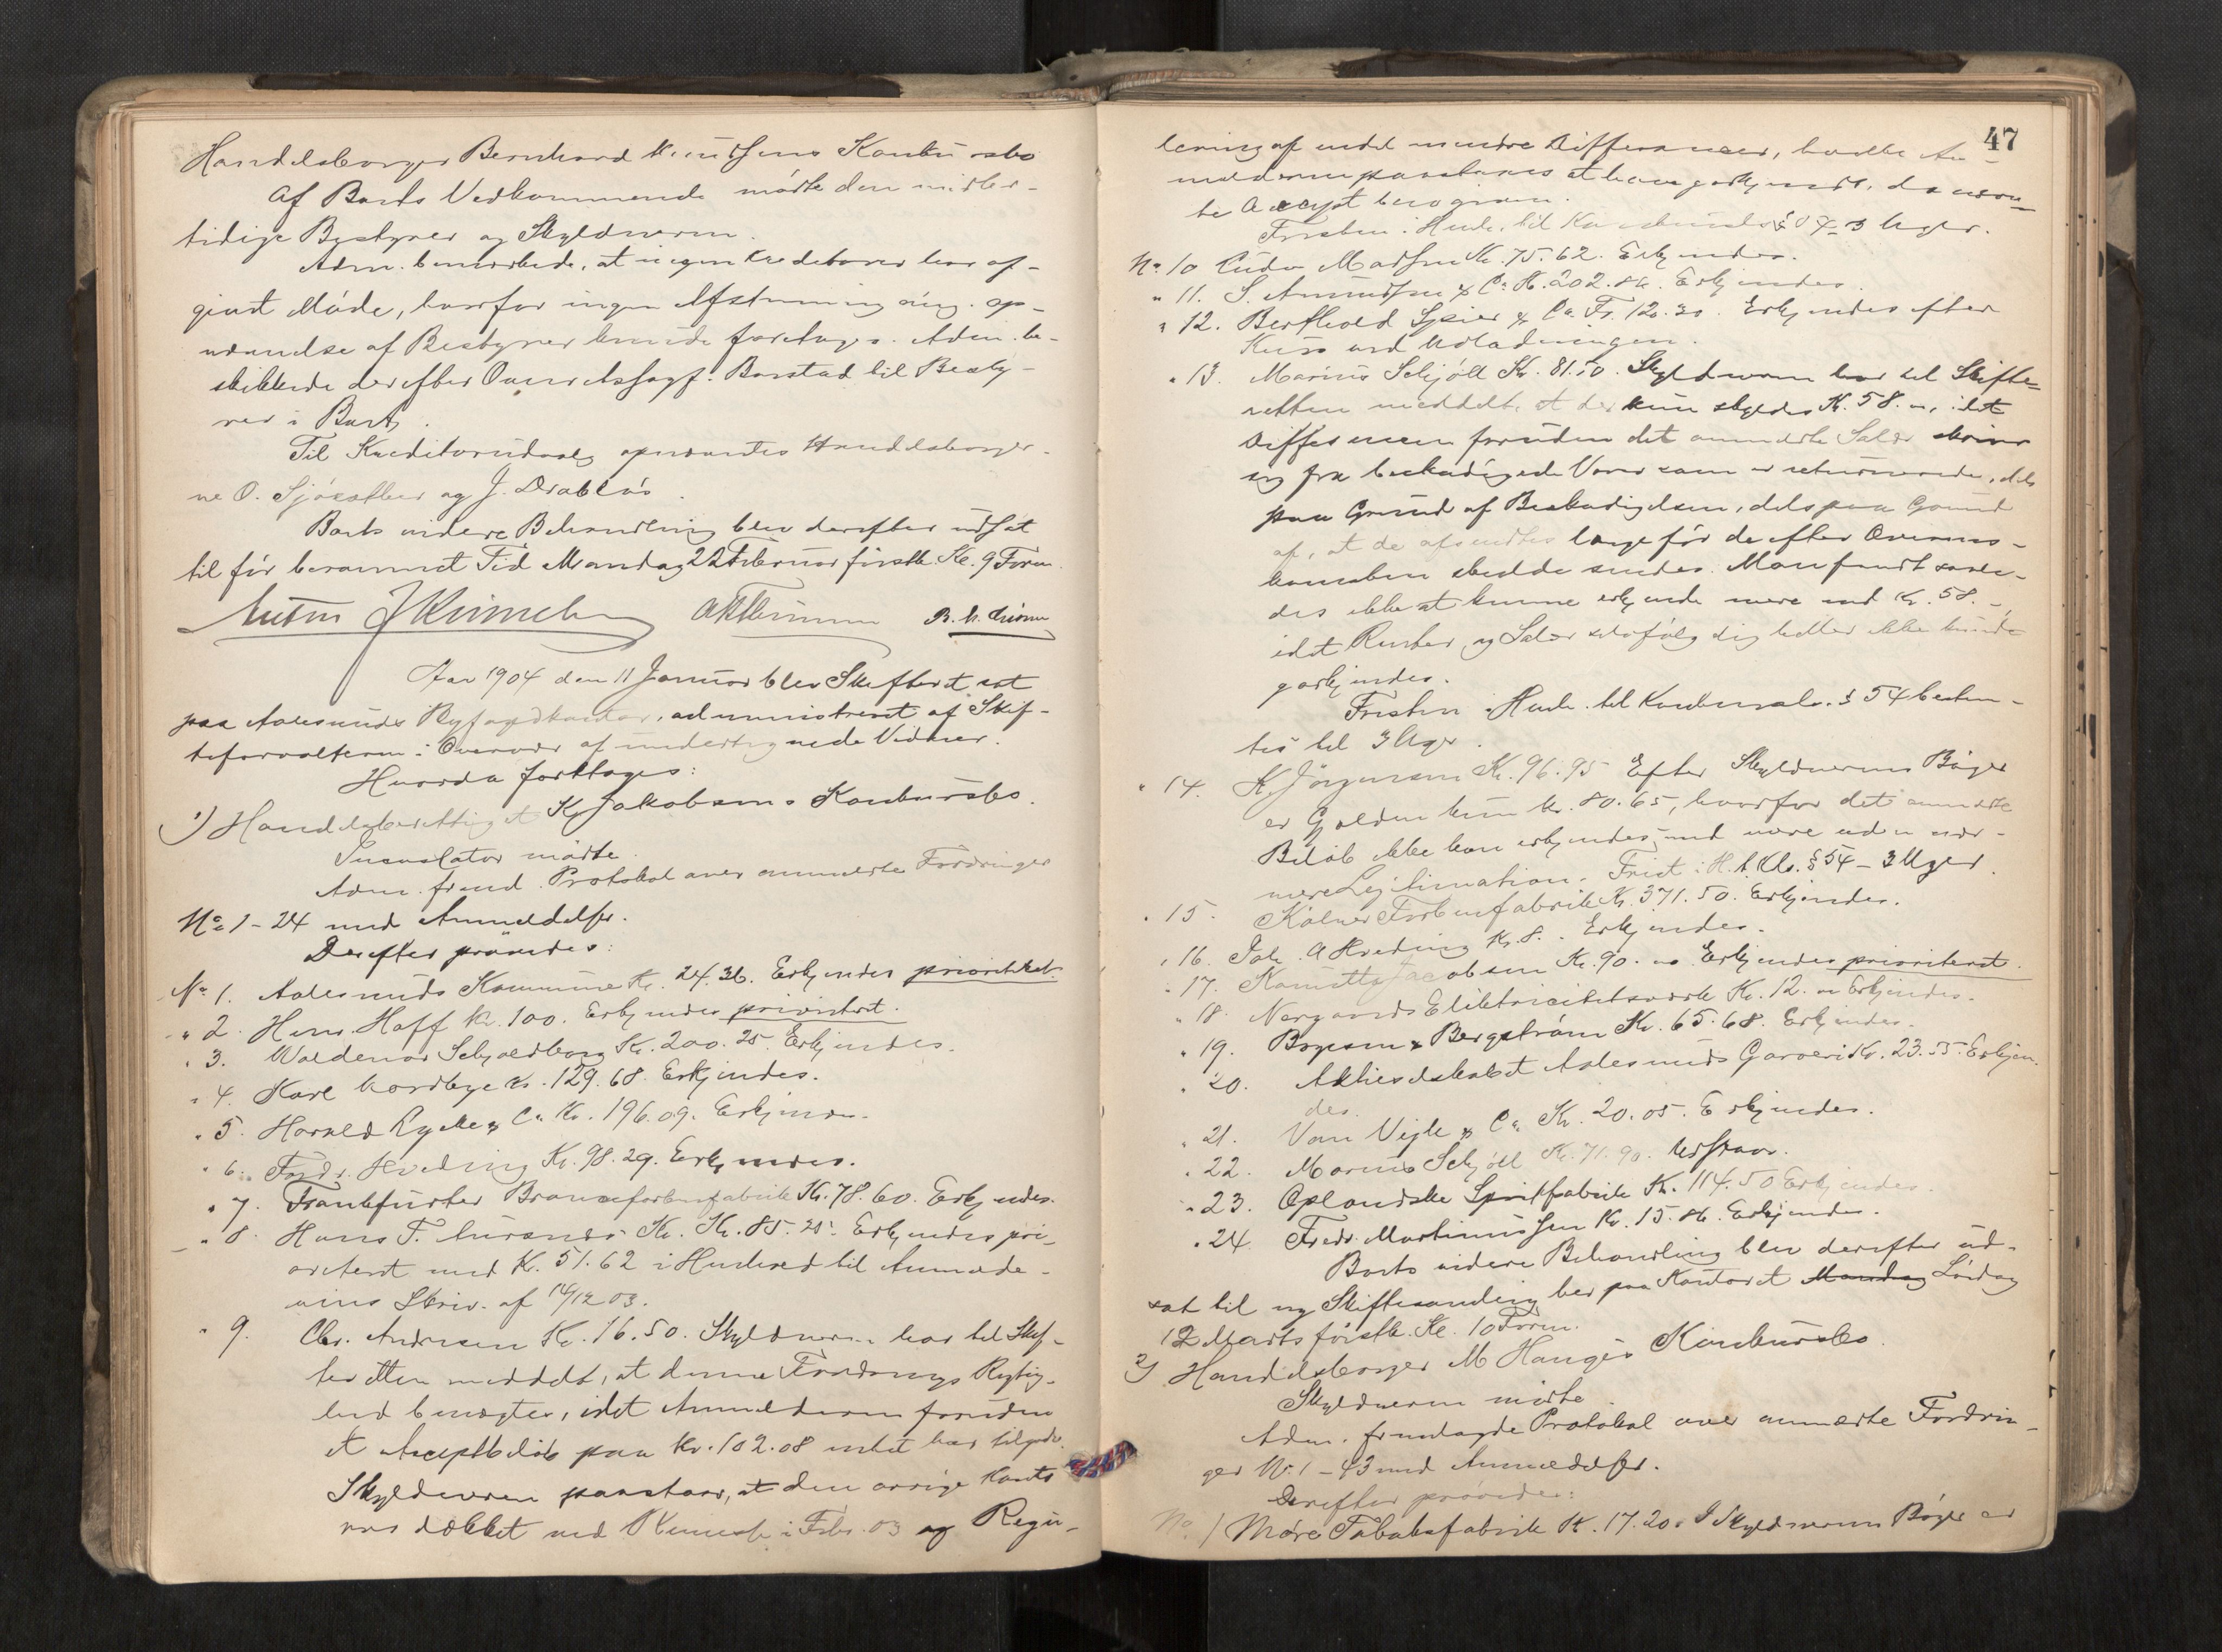 Handelsborger Bernhard Knudsens Konkursbo
Af Boets Vedkommende mødte den midler-
tidige Bestyrer og Skyldneren.
Adm. bemærkede, at ingen Kreditorer har af-
givet Møde, hvorfor ingen Afstemning ang. op-
nævnelse af Bestyrer kunde foretages. Adm. be-
skikkede derefter Overretssagf. Borstad til Besty-
rer i Boet.
Til Kreditorudvalg opnævntes Handelsborger-
ne O. Sjøholt og J. Drabløs.
Boets videre Behandling blev derefter udsat
til før berammet Tid Mandag 22 Februar førstk. Kl. 9 Form.
Aar 1904 den 11 Januar blev Skifteret sat
paa Aalesunds Byfogdkontor, administreret af Skif-
teforvalteren i Overvær af undertegnede Vidner.
Hvorda foretoges:
1) Handelsberettiget K. Jakobsens Konkursbo.
Incassator mødte.
Adm. freml. Protokol over anmeldte Fordringer
No 1-24 med Anmeldelser.
Derefter prøvedes:
No 1. Aalesunds Kommune Kr. 24.36. Erkjendes prioriteret.
" 2. Hans Hoff Kr. 100. Erkjendes prioriteret.
" 3. Waldemar Schjoldborg Kr. 200.25. Erkjendes.
" 4. Karl Nordbye Kr. 129.68. Erkjendes.
" 5. Harald Lyche & Co Kr. 196.09. Erkjendes.
" 6. Fredr. Hveding Kr. 98.29. Erkjendes.
" 7. Frankfurter Broncefarbenfabrik Kr. 78.60. Erkjendes.
" 8. Hans T. Kr. 85.25. Erkjendes pri-
oriteret med Kr. 51.62 i Henhold til Anmelde-
rens Skriv. af 14/12 03.
" 9. Chr. Andresen Kr. 16.50. Skyldneren har til Skif-
teretten meddelt, at denne Fordrings Rigtig-
hed benægtes, idet Anmelderen foruden
et Acceptbeløb paa Kr. 102.08 intet har tilgode.
Skyldneren paastaar, at den øvrige Konto
var dækket med Rimesse i Febr. 03 og Regu-
47
lering af endel mindre Differancer, hvilke An-
melderen paastaaes at have godkjendt, da nævn-
te Accept blev given.
Fristen i Henh. til Konkurslov § 54 3 Uger.
No 10 Madsen Kr. 75.62. Erkjendes.
" 11. S. Amundsen & Co Kr. 202.86. Erkjendes.
" 12. Berthold Spier & Co Fr. 120.30. Erkjendes efter
Kurs ved Udlodningen.
" 13. Marius Schjøll Kr. 81.50. Skyldneren har til Skifte-
retten meddelt, at der kun skyldes Kr. 58.–, idet
Differencen foruden det anmeldte Salær skriver
sig fra beskadigede Varer som er returnerede, dels
paa Grund af Beskadigelsen, dels paa Grund
af, at de afsendtes længe før de efter Overens-
komsten skulde sendes. Man fandt saale-
des ikke at kunne erkjende mere end Kr. 58.–,
idet Renter og Salær selvfølgelig heller ikke kunde
godkjendes.
Fristen i Henh. til Konkurslov. § 54 bestem-
tes til 3 Uger.
" 14. K. Jørgensen Kr. 96.95 Efter Skyldnerens Bøger
er Gjælden kun Kr. 80.65, hvorfor det anmeldte
Beløb ikke kan erkjendes med mere uden nær-
mere Legitimation. Frist i H. t. Kl. § 54 – 3 Uger.
" 15. Kølner Farbenfabrik Kr. 371.50. Erkjendes.
" 16. Joh. A Hveding Kr. 8. – Erkjendes.
" 17. Jacobsen Kr. 90. – Erkjendes prioriteret.
" 18. Nørgaards Elektricitetsværk Kr. 12. – Erkjendes.
" 19. Bergstrøm Kr. 65.68. Erkjendes.
" 20. Aktieselskabet Aalesunds Garveri Kr. 23.55. Erkjen-
des.
" 21. Van Vejle & Co Kr. 20.05. Erkjendes.
" 22. Marius Schjøll Kr. 71.90. Udstaar.
" 23. Oplandske Spritfabrik Kr. 114.50 Erkjendes.
" 24. Fredr. Martinussen Kr. 15.86. Erkjendes.
Boets videre Behandling blev derefter ud-
sat til ny Skiftesamling her paa Kontoret Mandag Lørdag
12 Marts førstk. Kl. 10 Form.
2) Handelsborger M Hauges Konkursbo.
Skyldneren mødte.
Adm. fremlagde Protokol over anmeldte Fordrin-
ger No 1-43 med Anmeldelser.
Derefter prøvedes:
No 1 Møre Tobaksfabrik Kr. 17.20. I Skyldnerens Bøger er